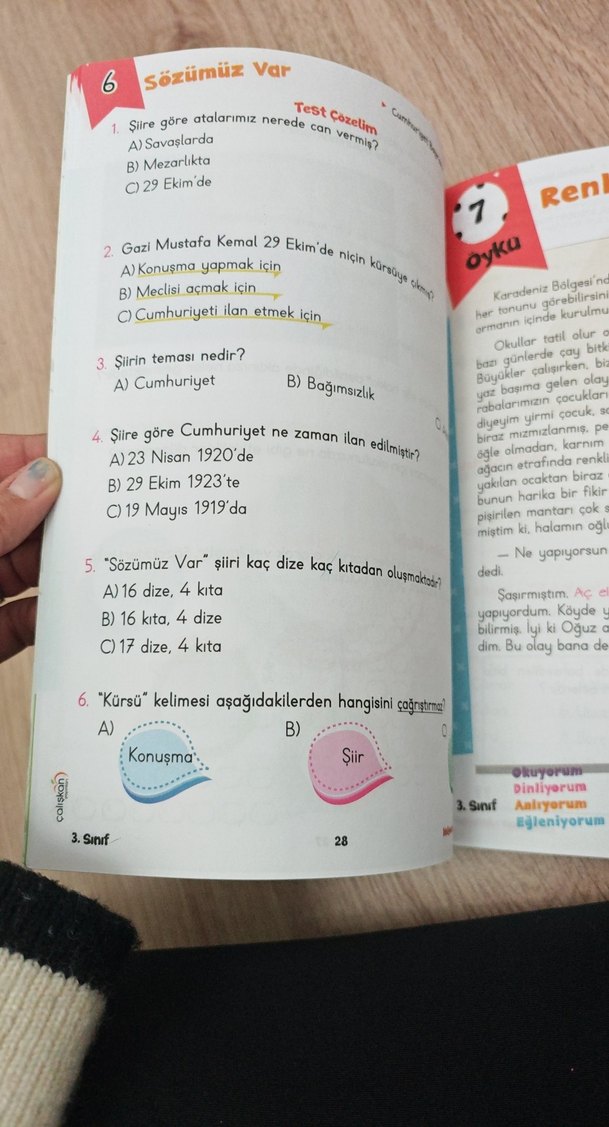 6 Sözümüz Var
Test Çözelim
1. Şiire göre atalarımız nerede can vermiş?
A) Savaşlarda
B) Mezarlıkta
C) 29 Ekim'de
2. Gazi Mustafa Kemal 29 Ekim'de niçin kürsüye çıkmış?
A) Konuşma yapmak için
B) Meclisi açmak için
C) Cumhuriyeti ilan etmek için
3. Şiirin teması nedir?
A) Cumhuriyet B) Bağımsızlık
4. Şiire göre Cumhuriyet ne zaman ilan edilmiştir?
A) 23 Nisan 1920'de
B) 29 Ekim 1923'te
C) 19 Mayıs 1919'da
5. "Sözümüz Var" şiiri kaç dize kaç kıtadan oluşmaktadır?
A) 16 dize, 4 kıta
B) 16 kıta, 4 dize
C) 17 dize, 4 kıta
6. "Kürsü" kelimesi aşağıdakilerden hangisini çağrıştırmaz?
A) B)
Konuşma Şiir
çalışkan
3. Sınıf 28
7
öykü
Karadeniz Bölgesi'nd
her tonunu görebilirsini
ormanın içinde kurulmu
Okullar tatil olur o
bazı günlerde çay bitk
Büyükler çalışırken, biz
yaz başıma gelen olay
rabalarımızın çocukları
diyeyim yirmi çocuk, sa
biraz mızmızlanmış, pe
öğle olmadan, karnım
ağacın etrafında renkli
yakılan ocaktan biraz
bunun harika bir fikir
pişirilen mantarı çok s
miştim ki, halamın oğlu
— Ne yapıyorsun
dedi.
Şaşırmıştım. Aç el
yapıyordum. Köyde y
bilirmiş. İyi ki Oğuz a
dim. Bu olay bana de
3. Sınıf
Okuyorum
Dinliyorum
Anlıyorum
Eğleniyorum